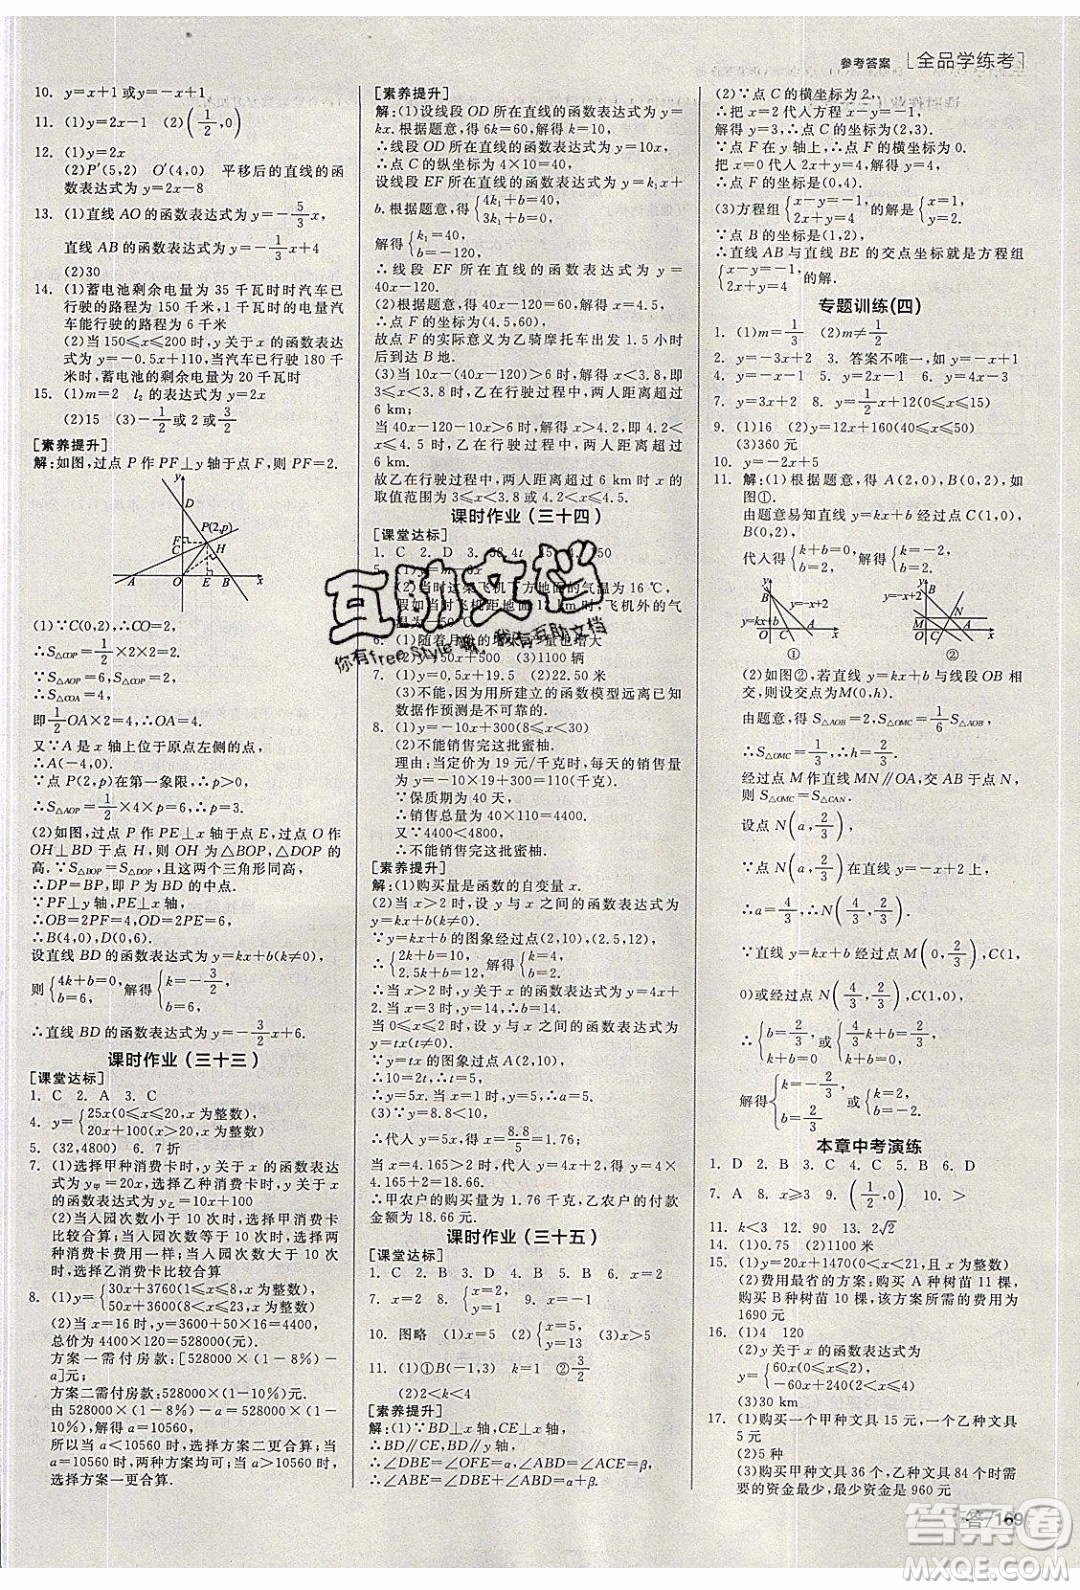 参考答案 [全品学练考]
10. y=x+1 或 y=-x+1
11. (1)y=2x-1 (2)(1/2,0)
12. (1)y=2x
(2)P′(5,2) O′(4,0) 平移后的直线的函
数表达式为 y=2x-8
13. (1)直线 AO 的函数表达式为 y=-5/3x,
直线 AB 的函数表达式为 y=-1/3x+4
(2)30
14. (1)蓄电池剩余电量为 35 千瓦时时汽车已
行驶的路程为 150 千米,1 千瓦时的电量汽
车能行驶的路程为 6 千米
(2)当 150≤x≤200 时,函数表达式为
y=-0.5x+110,当汽车已行驶 180 千米
时,蓄电池的剩余电量为 20 千瓦时
15. (1)m=2 l₂ 的表达式为 y=2x
(2)15 (3)-1/2或 2 或3/2
[素养提升]
解:如图,过点 P 作 PF⊥y 轴于点 F,则 PF=2.
y D F P(2,p) C H A O E B x
(1)∵C(0,2),∴CO=2,
∴S△COP=1/2×2×2=2.
∵S△AOP=6,S△COP=2,
∴S△COA=4,
即1/2OA×2=4,∴OA=4.
又∵A 是 x 轴上位于原点左侧的点,
∴A(-4,0).
∵点 P(2,p)在第一象限,∴p>0,
∴S△AOP=1/2×4×p=6,∴p=3.
(2)如图,过点 P 作 PE⊥x 轴于点 E,过点 O 作
OH⊥BD 于点 H,则 OH 为△BOP,△DOP 的
高.∵S△BOP=S△DOP,且这两个三角形同高,
∴DP=BP,即 P 为 BD 的中点.
∵PF⊥y 轴,PE⊥x 轴,
∴OB=2PF=4,OD=2PE=6,
∴B(4,0),D(0,6).
设直线 BD 的函数表达式为 y=kx+b(k≠0),
则{4k+b=0, b=6, 解得{k=-3/2, b=6,
∴直线 BD 的函数表达式为 y=-3/2x+6.
课时作业(三十三)
[课堂达标]
1. C 2. A 3. C
4. y={25x(0≤x≤20,x 为整数) 20x+100(x>20,x 为整数)
5. (32,4800) 6. 7 折
7. (1)选择甲种消费卡时,y 关于 x 的函数表达
式为 y甲=20x,选择乙种消费卡时,y 关于 x
的函数表达式为 y乙=10x+100
(2)当入园次数小于 10 次时,选择甲消费卡
比较合算;当入园次数等于 10 次时,选择两
种消费卡费用一样;当入园次数大于 10 次
时,选择乙消费卡比较合算
8. (1)y={30x+3760(1≤x≤8,x 为整数) 50x+3600(8<x≤23,x 为整数)
(2)当 x=16 时,y=3600+50×16=4400,
总价为 4400×120=528000(元).
方案一需付房款:[528000(1-8%)-
a]元;
方案二需付房款:528000(1-10%)元.
由 528000(1-8%)-a=528000(1-
10%),解得 a=10560,
所以当 a<10560 时,方案二更合算;当 a=
10560 时,两种方案均可;当 a>10560 时,
选择方案一更合算.
[素养提升]
解:(1)设线段 OD 所在的直线的函数表达式为 y=
kx.根据题意,得 6k=60,解得 k=10,
∴线段 OD 所在直线的函数表达式为 y=10x,
∴点 C 的纵坐标为 4×10=40.
设线段 EF 所在直线的函数表达式为 y=k₁x+
b.根据题意,得{4k₁+b=40, 3k₁+b=0,
解得{k₁=40, b=-120,
∴线段 EF 所在直线的函数表达式为 y=
40x-120.
(2)根据题意,得 40x-120=60,解得 x=4.5,
∴点 F 的坐标为(4.5,60),
故点 F 的实际意义为乙骑摩托车出发 1.5 小时
后到达 B 地.
(3)当 10x-(40x-120)>6 时,解得 x<3.8,此
时,甲在行驶过程中,乙在行驶过程中,两人距离超过
6 km;
当 40x-120-10x>6 时,解得 x>4.2,此
时,甲在行驶过程中,乙在行驶过程中,两人距离超过
6 km.
故乙在行驶过程中,两人距离超过 6 km 时 x 的
取值范围为 3≤x<3.8 或 4.2<x≤4.5.
课时作业(三十四)
[课堂达标]
1. C 2. D
(2)当时这架飞机下方地面的气温为 16 ℃,
假如当时飞机距离地面 12 km,飞机外的气
6. (1)随着月份的增来月产量也增大
(2)y=50x+500 (3)1100 辆
7. (1)y=0.5x+19.5 (2)22.50 米
(3)不能,因为所建立的函数模型远离已知
数据作预测是不可靠的.
8. (1)y=-10x+300(8≤x<30)
(2)不能销售完这批蜜柚.
理由:当定价为 19 元/千克时,每天的销售量
y=-10×19+300=110(千克).
∵保质期为 40 天,
∴销售总量为 40×110=4400.
又∵4400<4800,
∴不能销售完这批蜜柚.
[素养提升]
解:(1)购买量是函数的自变量 x.
(2)当 x>2 时,设 y 与 x 之间的函数表达式为
y=kx+b(k≠0).
∵y=kx+b 的图象经过点(2,10),(2.5,12),
∴{2k+b=10, 2.5k+b=12, 解得{k=4, b=2,
∴当 x>2 时,y 关于 x 的函数表达式为 y=4x+
2.当 x=3 时,y=14,∴b=14.
当 0≤x≤2 时,设 y 关于 x 的函数表达式为
y=tx(t≠0).
∵y=tx 的图象经过点 A(2,10),
∴10=2t,解得 t=5,
∴y=5x.当 x=1 时,y=5,∴a=5.
(3)∵y=8.8<10,
∴代入 y=5x,得 x=8.8/5=1.76,
当 x=4.165>2 时,∴代入 y=4x+2,得 y=4×
4.165+2=18.66.
∴甲农户的购买量为 1.76 千克,乙农户的付款
金额为 18.66 元.
课时作业(三十五)
[课堂达标]
1. C 2. B 3. C 4. D 5. B 6. x=2
7. x=2 8. {x=1, y=1 9. -1
10. 图略 (1)x=5 (2){x=5, y=13 (3)x>5
11. (1)①B(-1,3) k=1 ②3/2
(2)2<k<4
[素养提升]
解:(1)∵BD⊥x 轴,CE⊥x 轴,
∴BD//CE//y 轴,
∴∠DBE=∠OFE=α,∠ABD=∠ACE=β.
∴∠ABE=∠DBE+∠ABD=α+β.
(2)∵点 C 的横坐标为 2,
∴把 x=2 代入方程 x-y=-1,
解得 y=3,∴点 C 的坐标为(2,3).
把 x=0 代入 2x+y=4,解得 y=4.
∴点 E 的坐标是(0,4).
(3)方程组{x-y=-1, 2x+y=4 的解为{x=1, y=2.
∴点 B 的坐标为(1,2),
∴直线 AB 与直线 BE 的交点坐标就是方程组
{x-y=-1, 2x+y=4 的解.
专题训练(四)
1. (1)m=1/3 (2)m≠1/3
2. y=-3x+2 3. 答案不唯一,如 y=x+2
4. y=-x+1 5. y=2x 6. y=4x-3
7. y=3x+2 8. y=1/2x+6(0≤x≤15)
9. (1)16 (2)y=12x+160(4≤x≤16)
(3)360 元
10. y=-2x+5
11. 解:(1)根据题意,得 A(2,0),B(0,2),如
图①.
由题意易知直线 y=kx+b 过点 C(1,0),
B(0,2),
代入得{k+b=0, b=2, 解得{k=-2, b=2.
y B y=-x+2 O C A x ① y B y=-x+2 M N O C A x ②
(2)如图②,若直线 y=kx+b 与线段 OB 相
交,则设交点为M(0,h).
由题意,得 S△AOB=2,S△OMC=1/6S△AOB=1/3,
∴S△OMC=1/3,∴1/2h=1/3,∴h=2/3.
经过点 M 作直线 MN//OA,交AB 于点 N,
则 S△OMC=S△CAN.
设点 N(a,2/3),
∵点 N(a,2/3)在直线 y=-x+2 上,
∴a=4/3,∴N(4/3,2/3).
∵直线 y=kx+b 经过点 M(0,2/3),C(1,
0)或经过点 N(4/3,2/3),C(1,0),
解得{k=-2/3, b=2/3 或{k=2, b=-2.
本章中考演练
1. D 2. B 3. B 4. C 5. B 6. D
7. A 8. x≥3 9. (1/2,0) 10. >
11. k<3 12. 90 13. 2√2
14. (1)0.75 (2)1100 米
15. (1)y=20x+1470(0<x<21)
(2)费用最省的方案:购买 A 种树苗 11 棵,
购买 B 种树苗 10 棵,该方案所需的费用为
1690 元
16. (1)4 120
(2)y 关于 x 的函数表达式为
(3)30 km
17. (1)购买一个甲种文具 15 元,一个乙种文具
5 元
(2)5 种
(3)购买甲种文具 36 个,乙种文具 84 个时需要的
资金最少,最少资金是 960 元
答/169
互助文档
你有free Style嘛,我有互助文档
答案圈
MXQE.COM